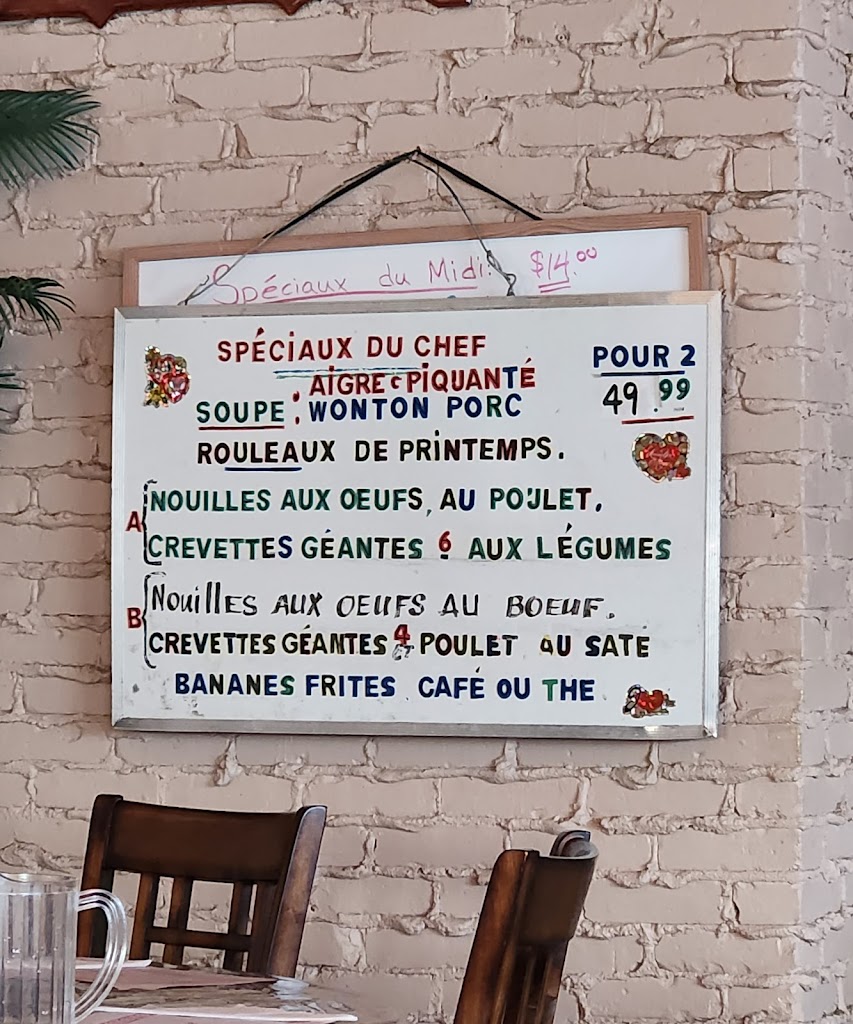 Spéciaux du Midi: $14.00
SPÉCIAUX DU CHEF
POUR 2
AIGRE c PIQUANTÉ
49.99
SOUPE: WONTON PORC
ROULEAUX DE PRINTEMPS.
A NOUILLES AUX OEUFS, AU POULET.
CREVETTES GÉANTES 6 AUX LÉGUMES
B NOUILLES AUX OEUFS AU BOEUF.
CREVETTES GÉANTES 4 POULET AU SATE
BANANES FRITES CAFÉ OU THE